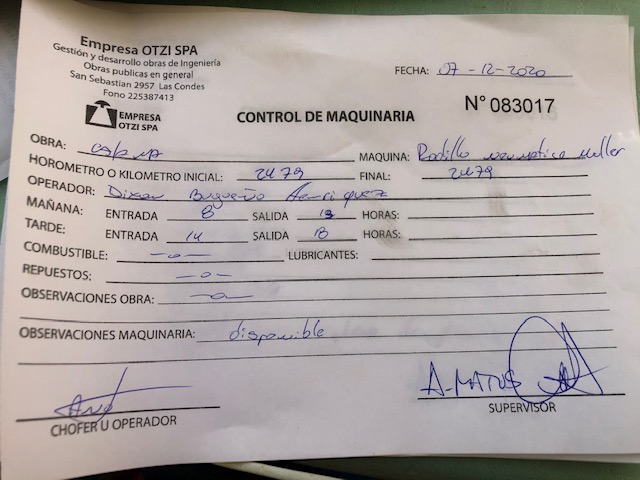 Empresa OTZI SPA
Gestión y desarrollo obras de Ingeniería
Obras publicas en general
San Sebastian 2957 Las Condes
Fono 225387413
FECHA: 07-12-2020
EMPRESA
OTZI SPA
CONTROL DE MAQUINARIA
N° 083017
OBRA: MAQUINA: Rodillo
HOROMETRO O KILOMETRO INICIAL: 2479 FINAL: 2479
OPERADOR:
MAÑANA: ENTRADA 8 SALIDA 13 HORAS:
TARDE: ENTRADA 14 SALIDA 18 HORAS:
COMBUSTIBLE: -o- LUBRICANTES:
REPUESTOS: -o-
OBSERVACIONES OBRA: -o-
OBSERVACIONES MAQUINARIA: disponible
A-MATUS
CHOFER U OPERADOR SUPERVISOR